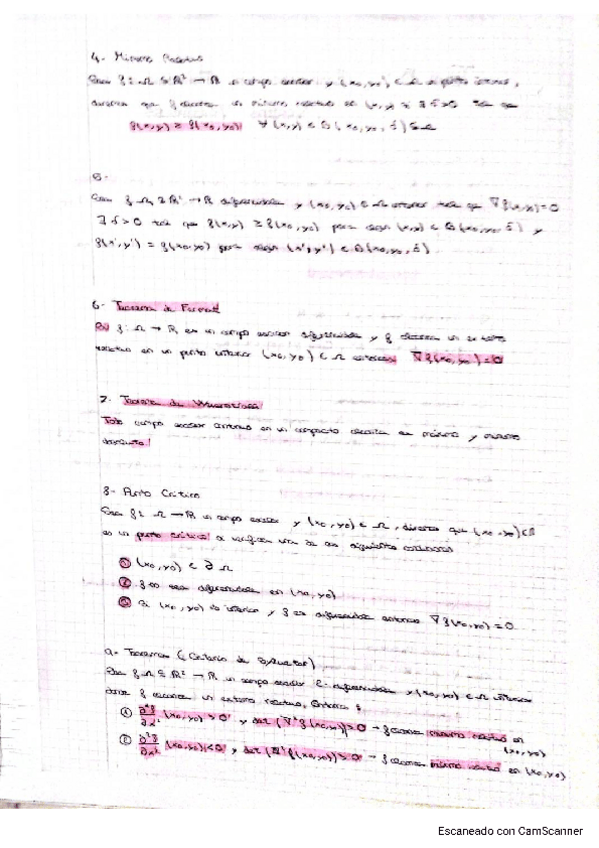 4. Mínimo Relativo
Sea f: Ω ⊆ ℝ² → ℝ un campo escalar y (x₀, y₀) ∈ Ω un punto interior,
diremos que f alcanza un mínimo relativo en (x₀, y₀) si ∃ δ>0 tal que
f(x,y) ≥ f(x₀,y₀) ∀ (x,y) ∈ B(x₀,y₀, δ) ⊆ Ω
5.
Sea f: Ω ⊆ ℝ² → ℝ diferenciable y (x₀,y₀) ∈ Ω interior tal que ∇f(x,y)=0
∃ δ>0 tal que f(x,y) ≥ f(x₀,y₀) para algún (x,y) ∈ B(x₀,y₀, δ) y
f(x',y') = f(x₀,y₀) para algún (x',y') ∈ B(x₀,y₀, δ)
6- Teorema de Fermat
f: Ω → ℝ, es un campo escalar diferenciable y f alcanza un extremo
relativo en un punto interior (x₀,y₀) ∈ Ω entonces ∇f(x₀,y₀)=0
7- Teorema de Weierstrass
Todo campo escalar continuo en un compacto alcanza su máximo y mínimo
absoluto!
8- Punto Crítico
Sea f: Ω → ℝ un campo escalar y (x₀,y₀) ∈ Ω, diremos que (x₀,y₀) ∈ Ω
es un punto crítico si verifica una de las siguientes condiciones
① (x₀,y₀) ∈ ∂Ω
② f no sea diferenciable en (x₀,y₀)
③ Si (x₀,y₀) es interior y f es diferenciable entonces ∇f(x₀,y₀)=0
9- Teorema (Criterio de)
Sea f: Ω ⊆ ℝ² → ℝ un campo escalar 2-diferenciable y (x₀,y₀) ∈ Ω interior
donde f alcanza un extremo relativo, entonces:
① ∂²f/∂x² (x₀,y₀) > 0 y det(∇²f(x₀,y₀)) > 0 → f alcanza mínimo relativo en
(x₀,y₀)
② ∂²f/∂x² (x₀,y₀) < 0 y det(f(x₀,y₀)) > 0 → f alcanza relativo en (x₀,y₀)
Escaneado con CamScanner